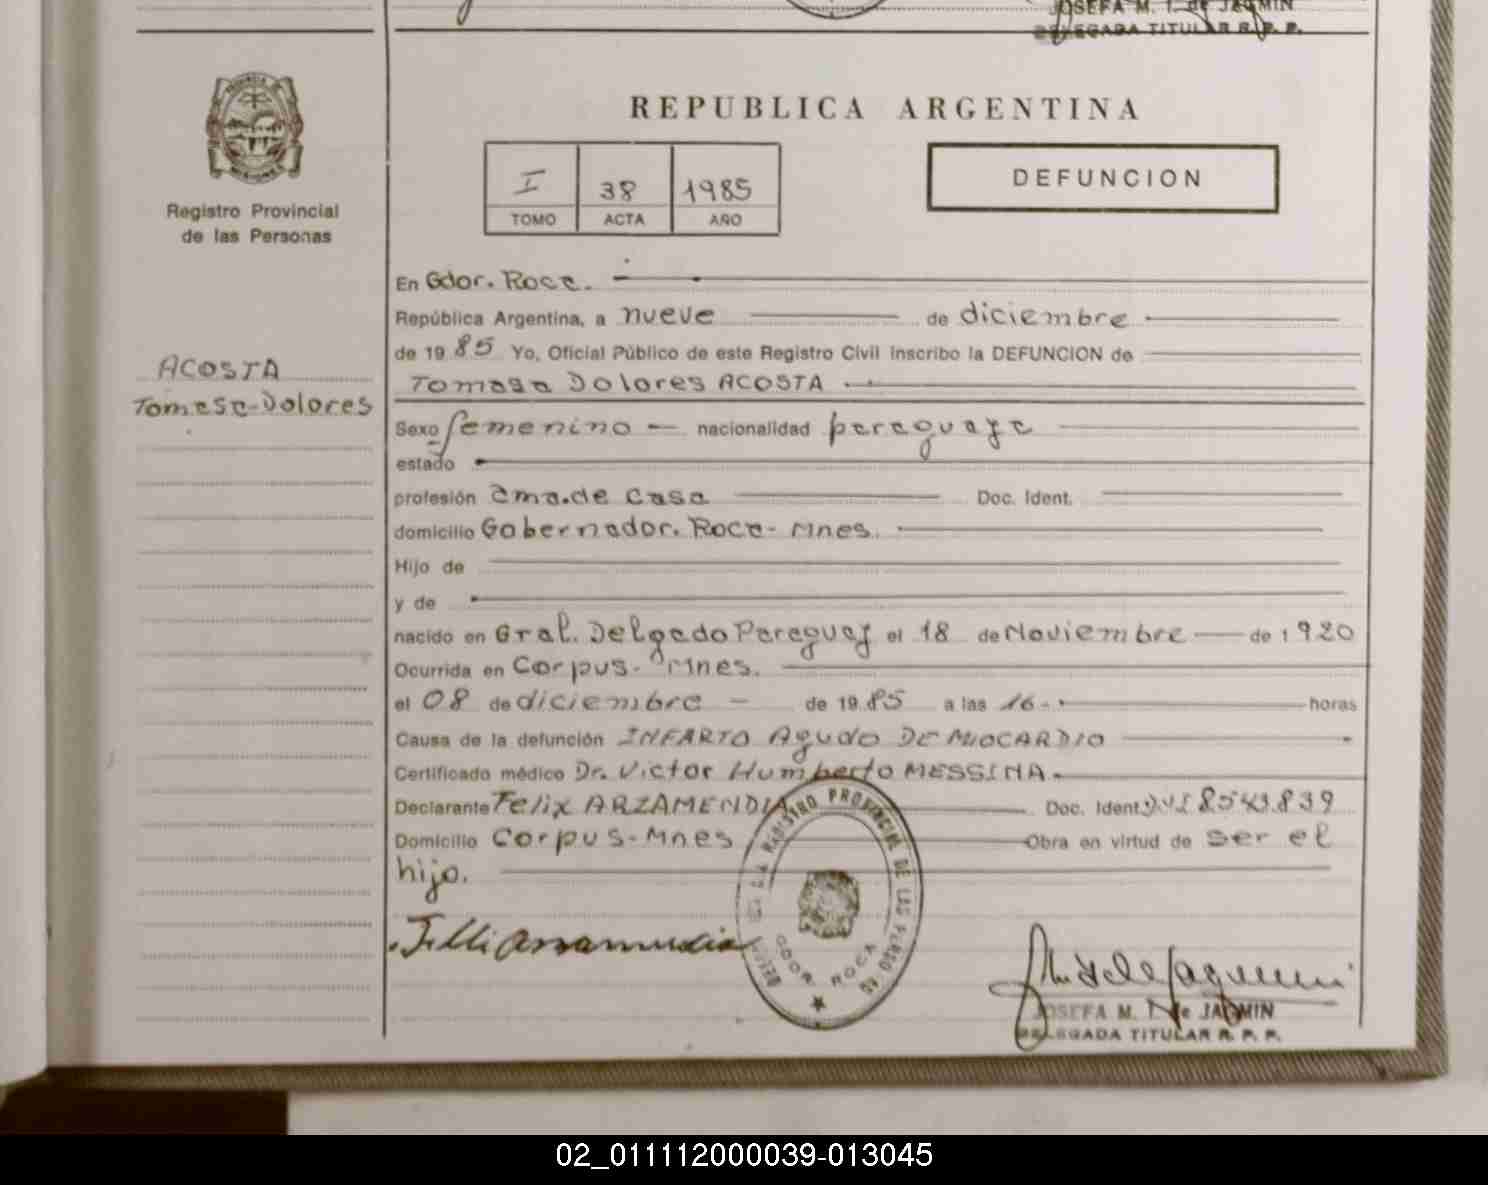 JOSEFA M. I. de JAQMIN
DELEGADA TITULAR R. P. P.
Registro Provincial
de las Personas
REPUBLICA ARGENTINA
I 38 1985
TOMO ACTA AÑO
DEFUNCION
ACOSTA
Tomasa-Dolores
En Gdor. Roca.
República Argentina, a nueve de diciembre
de 19 85 Yo, Oficial Público de este Registro Civil inscribo la DEFUNCION de
Tomasa Dolores ACOSTA
Sexo femenino nacionalidad paraguaya
estado
profesión ama.de casa Doc. Ident.
domicilio Gobernador. Roca- Mnes.
Hijo de
y de
nacido en Gral. Delgado Paraguay el 18 de Noviembre de 1 920
Ocurrida en Corpus- Mnes.
el 08 de diciembre - de 19 85 a las 16- horas
Causa de la defunción INFARTO AgUDO DE MIOCARDIO
Certificado médico Dr. Victor Humberto MESSINA.
Declarante Felix ARZAMENDIA Doc. Ident. DNI 8543.839
Domicilio Corpus-Mnes Obra en virtud de ser el
hijo.
REGISTRO PROVINCIAL DE LAS PERSO
GDOR ROCA
JOSEFA M. I. de JAQMIN
DELEGADA TITULAR R. P. P.
02_011112000039-013045